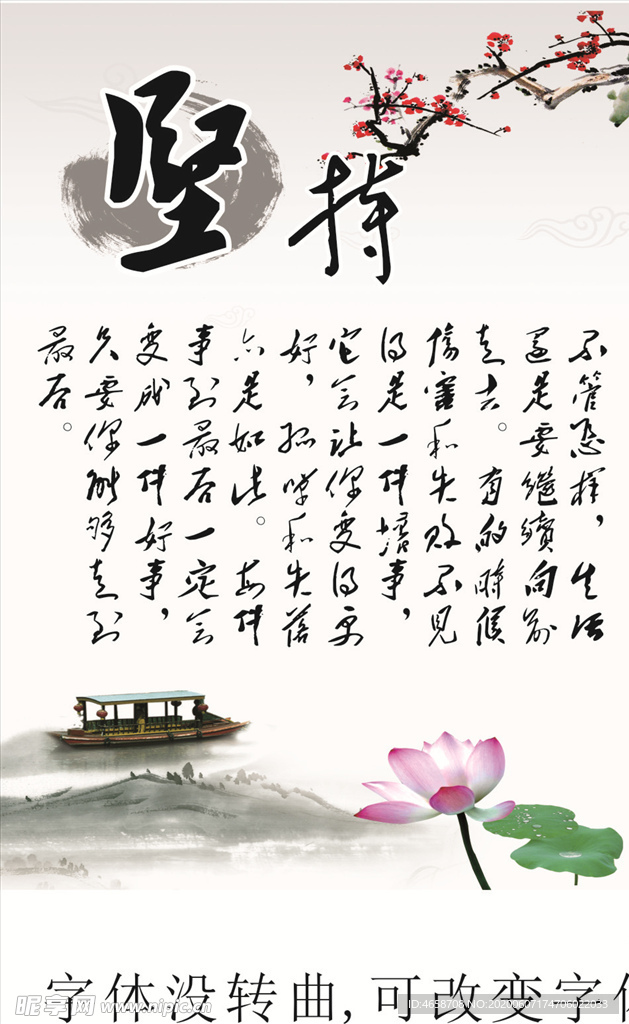 坚持
不管怎样，生活
還是要繼續向前
走去。有的時候
傷害和失败不见
得是一件壞事，
它会让你变得更
好，孤单和失落
亦是如此。每件
事到最后一定会
变成一件好事，
只要你能够走到
最后。
字体没转曲,可改变字体
昵享网 www.nipic.com
ID:4658708 NO:20200607174706022033